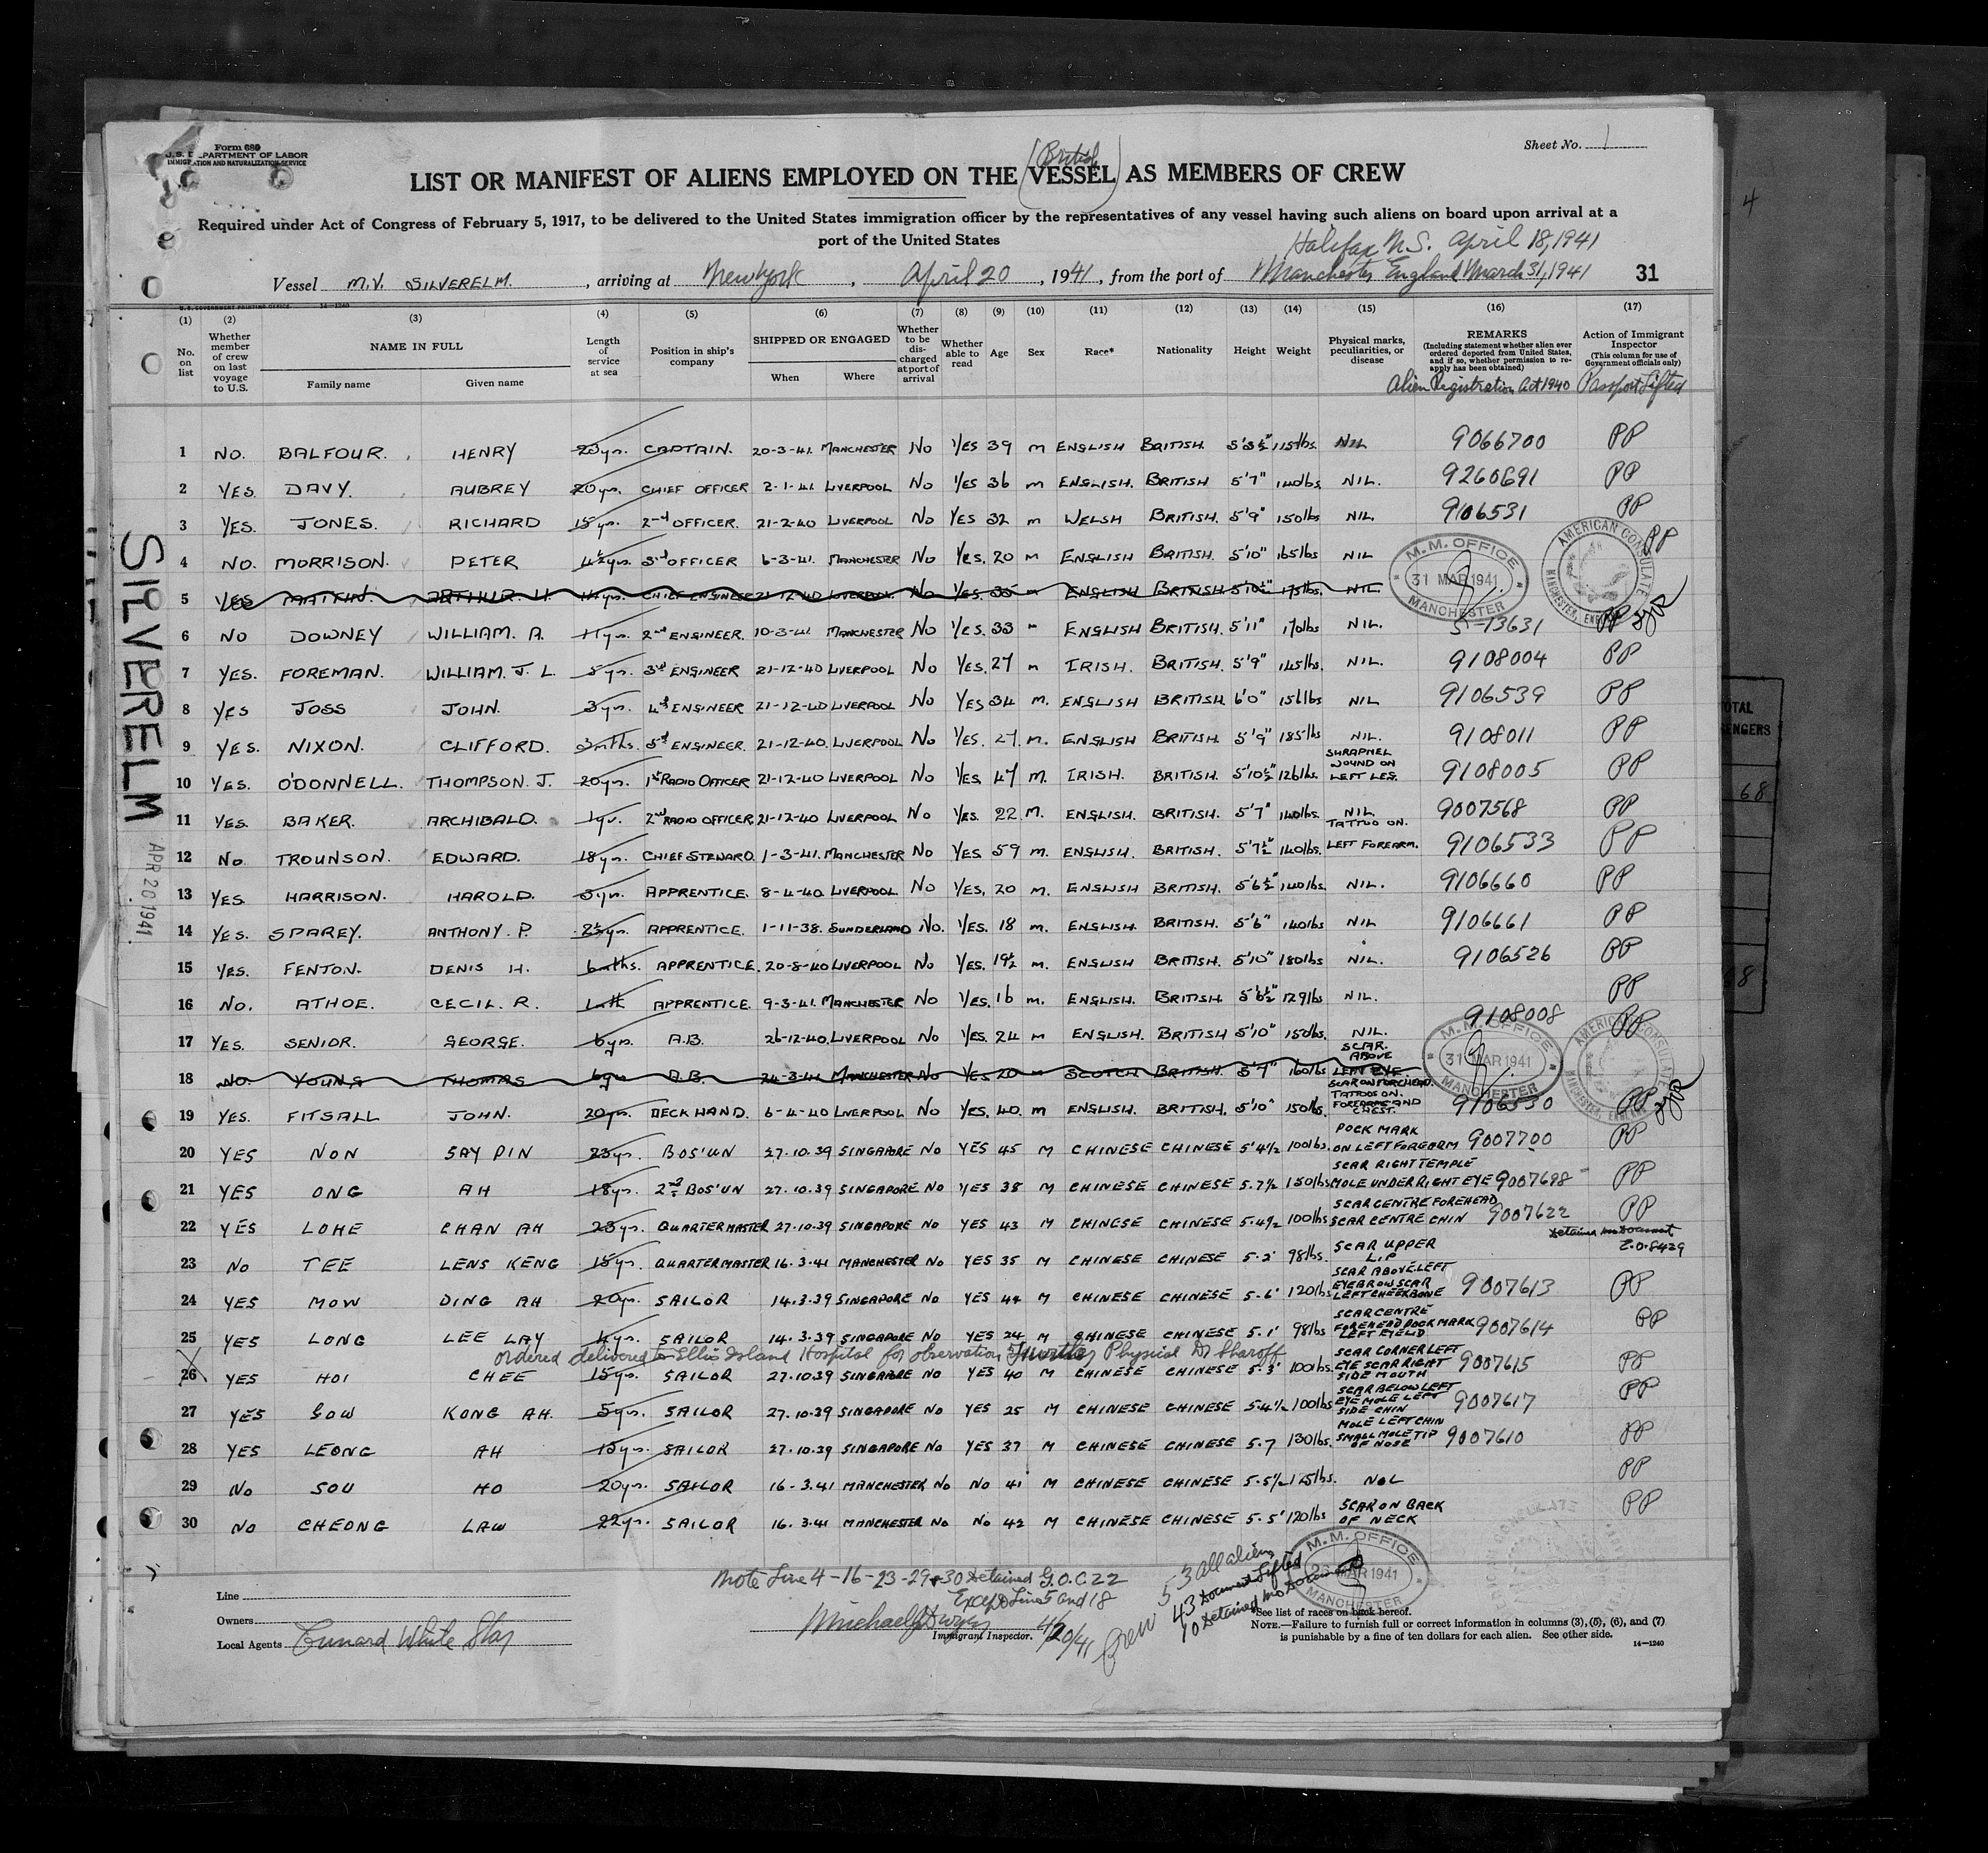 Form 689
U.S. DEPARTMENT OF LABOR
IMMIGRATION AND NATURALIZATION SERVICE
Sheet No. 1
(British)
LIST OR MANIFEST OF ALIENS EMPLOYED ON THE VESSEL AS MEMBERS OF CREW
Required under Act of Congress of February 5, 1917, to be delivered to the United States immigration officer by the representatives of any vessel having such aliens on board upon arrival at a
port of the United States
Halifax N.S. April 18, 1941
Vessel M.V. SILVERELM. , arriving at New York , April 20 , 1941 , from the port of Manchester England March 31, 1941 31
U.S. GOVERNMENT PRINTING OFFICE 14-1240
(1) (2) (3) (4) (5) (6) (7) (8) (9) (10) (11) (12) (13) (14) (15) (16) (17)
No. on list
Whether member of crew on last voyage to U.S.
NAME IN FULL
Family name Given name
Length of service at sea
Position in ship's company
SHIPPED OR ENGAGED
When Where
Whether to be discharged at port of arrival
Whether able to read
Age
Sex
Race*
Nationality
Height
Weight
Physical marks, peculiarities, or disease
REMARKS
(Including statement whether alien ever ordered deported from United States, and if so, whether permission to reapply has been obtained)
Alien Registration Act 1940
Action of Immigrant Inspector
(This column for use of Government officials only)
Passport Lifted
1 NO. BALFOUR. HENRY 20yrs. CAPTAIN. 20-3-41. MANCHESTER NO YES 39 M ENGLISH BRITISH. 5'8½" 115lbs. NIL 9066700 PP
2 YES. DAVY. AUBREY 20yrs. CHIEF OFFICER 2-1-41 LIVERPOOL NO YES 36 M ENGLISH. BRITISH 5'7" 140lbs NIL. 9260691 PP
3 YES. JONES. RICHARD 15yrs. 2nd OFFICER. 21-2-40 LIVERPOOL NO YES 32 M WELSH BRITISH. 5'9" 150lbs NIL. 9106531 PP
4 NO. MORRISON. PETER 4½yrs. 3rd OFFICER 6-3-41. MANCHESTER NO YES. 20 M ENGLISH BRITISH. 5'10" 165lbs NIL PP
5 YES ARTHUR. H. CHIEF ENGINEER 21-12-40 LIVERPOOL NO YES. 35 M ENGLISH BRITISH 5'10½" 175lbs NIL.
6 NO DOWNEY WILLIAM. A. 11yrs. 2nd ENGINEER. 10-3-41 MANCHESTER NO YES. 33 M ENGLISH BRITISH. 5'11" 170lbs NIL. 5-13631 PP
7 YES. FOREMAN. WILLIAM. J. L. 5yrs. 3rd ENGINEER 21-12-40 LIVERPOOL NO YES. 27 M IRISH. BRITISH. 5'9" 145lbs. NIL. 9108004 PP
8 YES JOSS JOHN. 3yrs. 4th ENGINEER 21-12-40 LIVERPOOL NO YES 34 M. ENGLISH BRITISH 6'0" 156lbs NIL 9106539 PP
9 YES. NIXON. CLIFFORD. 3mths. 5th ENGINEER. 21-12-40. LIVERPOOL NO YES. 27 M. ENGLISH BRITISH. 5'9" 185lbs NIL. 9108011 PP
10 YES. O'DONNELL. THOMPSON. J. 20yrs. 1st RADIO OFFICER 21-12-40 LIVERPOOL NO YES 47 M. IRISH. BRITISH. 5'10½" 126lbs. SHRAPNEL WOUND ON LEFT LEG. 9108005 PP
11 YES. BAKER. ARCHIBALD. 1yr. 2nd RADIO OFFICER 21-12-40 LIVERPOOL NO YES. 22 M. ENGLISH. BRITISH. 5'7" 140lbs NIL 9007568 PP
12 NO TROUNSON. EDWARD. 18yrs. CHIEF STEWARD. 1-3-41. MANCHESTER NO YES 59 M. ENGLISH. BRITISH. 5'7½" 140lbs. TATTOO ON. LEFT FOREARM. 9106533 PP
13 YES. HARRISON. HAROLD. 3yrs. APPRENTICE. 8-4-40 LIVERPOOL NO YES. 20 M. ENGLISH BRITISH. 5'6½" 140lbs. NIL. 9106660 PP
14 YES. SPAREY. ANTHONY. P. 2½yrs. APPRENTICE. 1-11-38. SUNDERLAND NO. YES. 18 M. ENGLISH. BRITISH. 5'6" 140lbs NIL 9106661 PP
15 YES. FENTON. DENIS H. 6mths. APPRENTICE. 20-8-40 LIVERPOOL NO YES. 19½ M. ENGLISH BRITISH. 5'10" 180lbs NIL. 9106526 PP
16 NO. ATHOE. CECIL. R. 1mth APPRENTICE. 9-3-41. MANCHESTER NO YES. 16 M. ENGLISH. BRITISH 5'6½" 129lbs NIL. PP
17 YES. SENIOR. GEORGE. 6yrs. A.B. 26-12-40. LIVERPOOL NO YES. 24 M ENGLISH. BRITISH 5'10" 150lbs. NIL. 9108008 PP
18 NO. YOUNG THOMAS 6yrs A.B. 24-3-41 MANCHESTER NO YES 20 M SCOTCH BRITISH. 5'7" 160lbs SCAR. ABOVE LEFT EYE.
19 YES. FITSALL JOHN. 20yrs. DECK HAND. 6-4-40 LIVERPOOL NO YES. 40. M ENGLISH. BRITISH. 5'10" 150lbs. SCAR ON FOREHEAD. TATTOOS ON. FOREARMS AND CHEST. 9106530 PP
20 YES NON SAY PIN 23yrs. BOS'UN 27.10.39 SINGAPORE NO YES 45 M CHINESE CHINESE 5'4½ 100lbs. POCK MARK ON LEFT FOREARM 9007700 PP
21 YES ONG AH 18yrs. 2nd BOS'UN 27.10.39 SINGAPORE NO YES 38 M CHINESE CHINESE 5.7½ 150lbs SCAR RIGHT TEMPLE MOLE UNDER RIGHT EYE 9007698 PP
22 YES LOHE CHAN AH 23yrs. QUARTERMASTER 27.10.39 SINGAPORE NO YES 43 M CHINESE CHINESE 5.4½ 100lbs SCAR CENTRE FOREHEAD SCAR CENTRE CHIN 9007622 PP
23 NO TEE LENS KENG 15yrs. QUARTERMASTER 16.3.41 MANCHESTER NO YES 35 M CHINESE CHINESE 5.2' 98lbs. SCAR UPPER LIP Detained no Document E.O.8429
24 YES MOW DING AH 20yrs. SAILOR 14.3.39 SINGAPORE NO YES 44 M CHINESE CHINESE 5.6' 120lbs SCAR ABOVE LEFT EYEBROW SCAR LEFT CHEEKBONE 9007613 PP
25 YES LONG LEE LAY 4yrs. SAILOR 14.3.39 SINGAPORE NO YES 24 M CHINESE CHINESE 5.1' 98lbs SCAR CENTRE FOREHEAD POCK MARK LEFT EYELID 9007614 PP
ordered delivered to Ellis Island Hospital for observation Further Physical Dr Sharoff
26 YES HOI CHEE 15yrs. SAILOR 27.10.39 SINGAPORE NO YES 40 M CHINESE CHINESE 5.3' 100lbs. SCAR CORNER LEFT EYE SCAR RIGHT SIDE MOUTH 9007615 PP
27 YES GOW KONG AH. 5yrs. SAILOR 27.10.39 SINGAPORE NO YES 25 M CHINESE CHINESE 5.4½ 100lbs SCAR BELOW LEFT EYE MOLE LEFT SIDE CHIN 9007617 PP
28 YES LEONG AH 15yrs. SAILOR 27.10.39 SINGAPORE NO YES 37 M CHINESE CHINESE 5.7 130lbs. MOLE LEFT CHIN SMALL MOLE TIP OF NOSE 9007610 PP
29 NO SOU HO 20yrs. SAILOR 16.3.41 MANCHESTER NO NO 41 M CHINESE CHINESE 5.5½ 125lbs. NOL PP
30 NO CHEONG LAW 22yrs. SAILOR 16.3.41 MANCHESTER NO NO 42 M CHINESE CHINESE 5.5' 120lbs SCAR ON BACK OF NECK PP
SILVERELM
APR 20 1941
M.M. OFFICE
31 MAR 1941
MANCHESTER
AMERICAN CONSULATE
MANCHESTER, ENGLAND
M.M. OFFICE
31 MAR 1941
MANCHESTER
AMERICAN CONSULATE
MANCHESTER, ENGLAND
M.M. OFFICE
MAR 1941
MANCHESTER
Note Line 4-16-23-29+30 Detained G.O.C22
Except Lines 5 and 18
4/20/41
Immigrant Inspector.
Crew 53 all aliens
43 Document Lifted
10 Detained no Document
Line
Owners
Local Agents Cunard White Star
*See list of races on back hereof.
NOTE.—Failure to furnish full or correct information in columns (3), (5), (6), and (7)
is punishable by a fine of ten dollars for each alien. See other side. 14-1240
4
TOTAL
68
68